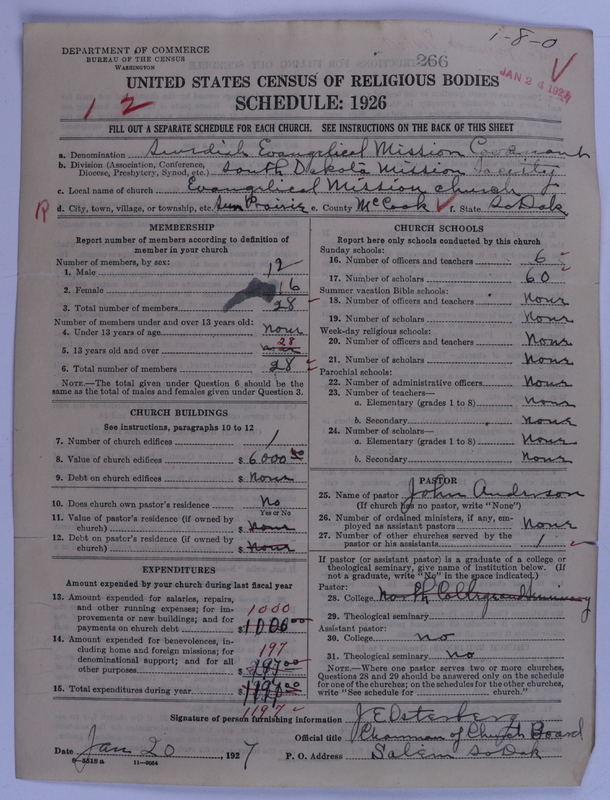 1-8-0
DEPARTMENT OF COMMERCE
BUREAU OF THE CENSUS
WASHINGTON
266
JAN 24 1927
UNITED STATES CENSUS OF RELIGIOUS BODIES
1 2
SCHEDULE: 1926
FILL OUT A SEPARATE SCHEDULE FOR EACH CHURCH. SEE INSTRUCTIONS ON THE BACK OF THIS SHEET
a. Denomination Swedish Evangelical Mission Covenant
b. Division (Association, Conference, Diocese, Presbytery, Synod, etc.) South Dakota Mission Society
c. Local name of church Evangelical Mission church
R d. City, town, village, or township, etc. Sun Prairie e. County McCook f. State So Dak
MEMBERSHIP
Report number of members according to definition of member in your church
Number of members, by sex:
1. Male 12
2. Female 16
3. Total number of members 28
Number of members under and over 13 years old:
4. Under 13 years of age none
5. 13 years old and over 28
6. Total number of members 28
NOTE.—The total given under Question 6 should be the same as the total of males and females given under Question 3.
CHURCH BUILDINGS
See instructions, paragraphs 10 to 12
7. Number of church edifices 1
8. Value of church edifices $ 6000 00
9. Debt on church edifices $ none
10. Does church own pastor's residence? No
Yes or No
11. Value of pastor's residence (if owned by church) $ none
12. Debt on pastor's residence (if owned by church) $ none
EXPENDITURES
Amount expended by your church during last fiscal year
13. Amount expended for salaries, repairs, and other running expenses; for improvements or new buildings; and for payments on church debt 1000 $ 1000 00
14. Amount expended for benevolences, including home and foreign missions; for denominational support; and for all other purposes 197 $ 197 00
15. Total expenditures during year $ 1197 00
1197
CHURCH SCHOOLS
Report here only schools conducted by this church
Sunday schools:
16. Number of officers and teachers 6
17. Number of scholars 60
Summer vacation Bible schools:
18. Number of officers and teachers None
19. Number of scholars None
Week-day religious schools:
20. Number of officers and teachers None
21. Number of scholars None
Parochial schools:
22. Number of administrative officers None
23. Number of teachers—
a. Elementary (grades 1 to 8) None
b. Secondary None
24. Number of scholars—
a. Elementary (grades 1 to 8) None
b. Secondary None
PASTOR
25. Name of pastor John Anderson
(If church has no pastor, write "None")
26. Number of ordained ministers, if any, employed as assistant pastors None
27. Number of other churches served by the pastor or his assistants 1
If pastor (or assistant pastor) is a graduate of a college or theological seminary, give name of institution below. (If not a graduate, write "No" in the space indicated.)
Pastor:
28. College North College and Seminary
29. Theological seminary
Assistant pastor:
30. College no
31. Theological seminary no
NOTE.—Where one pastor serves two or more churches, Questions 28 and 29 should be answered only on the schedule for one of the churches; on the schedules for the other churches, write "See schedule for ____ church."
Signature of person furnishing information J E Osterberg
Official title Chairman of Church Board
Date Jan 20, 1927 P. O. Address Salem So Dak
8—5518 a 11—9054